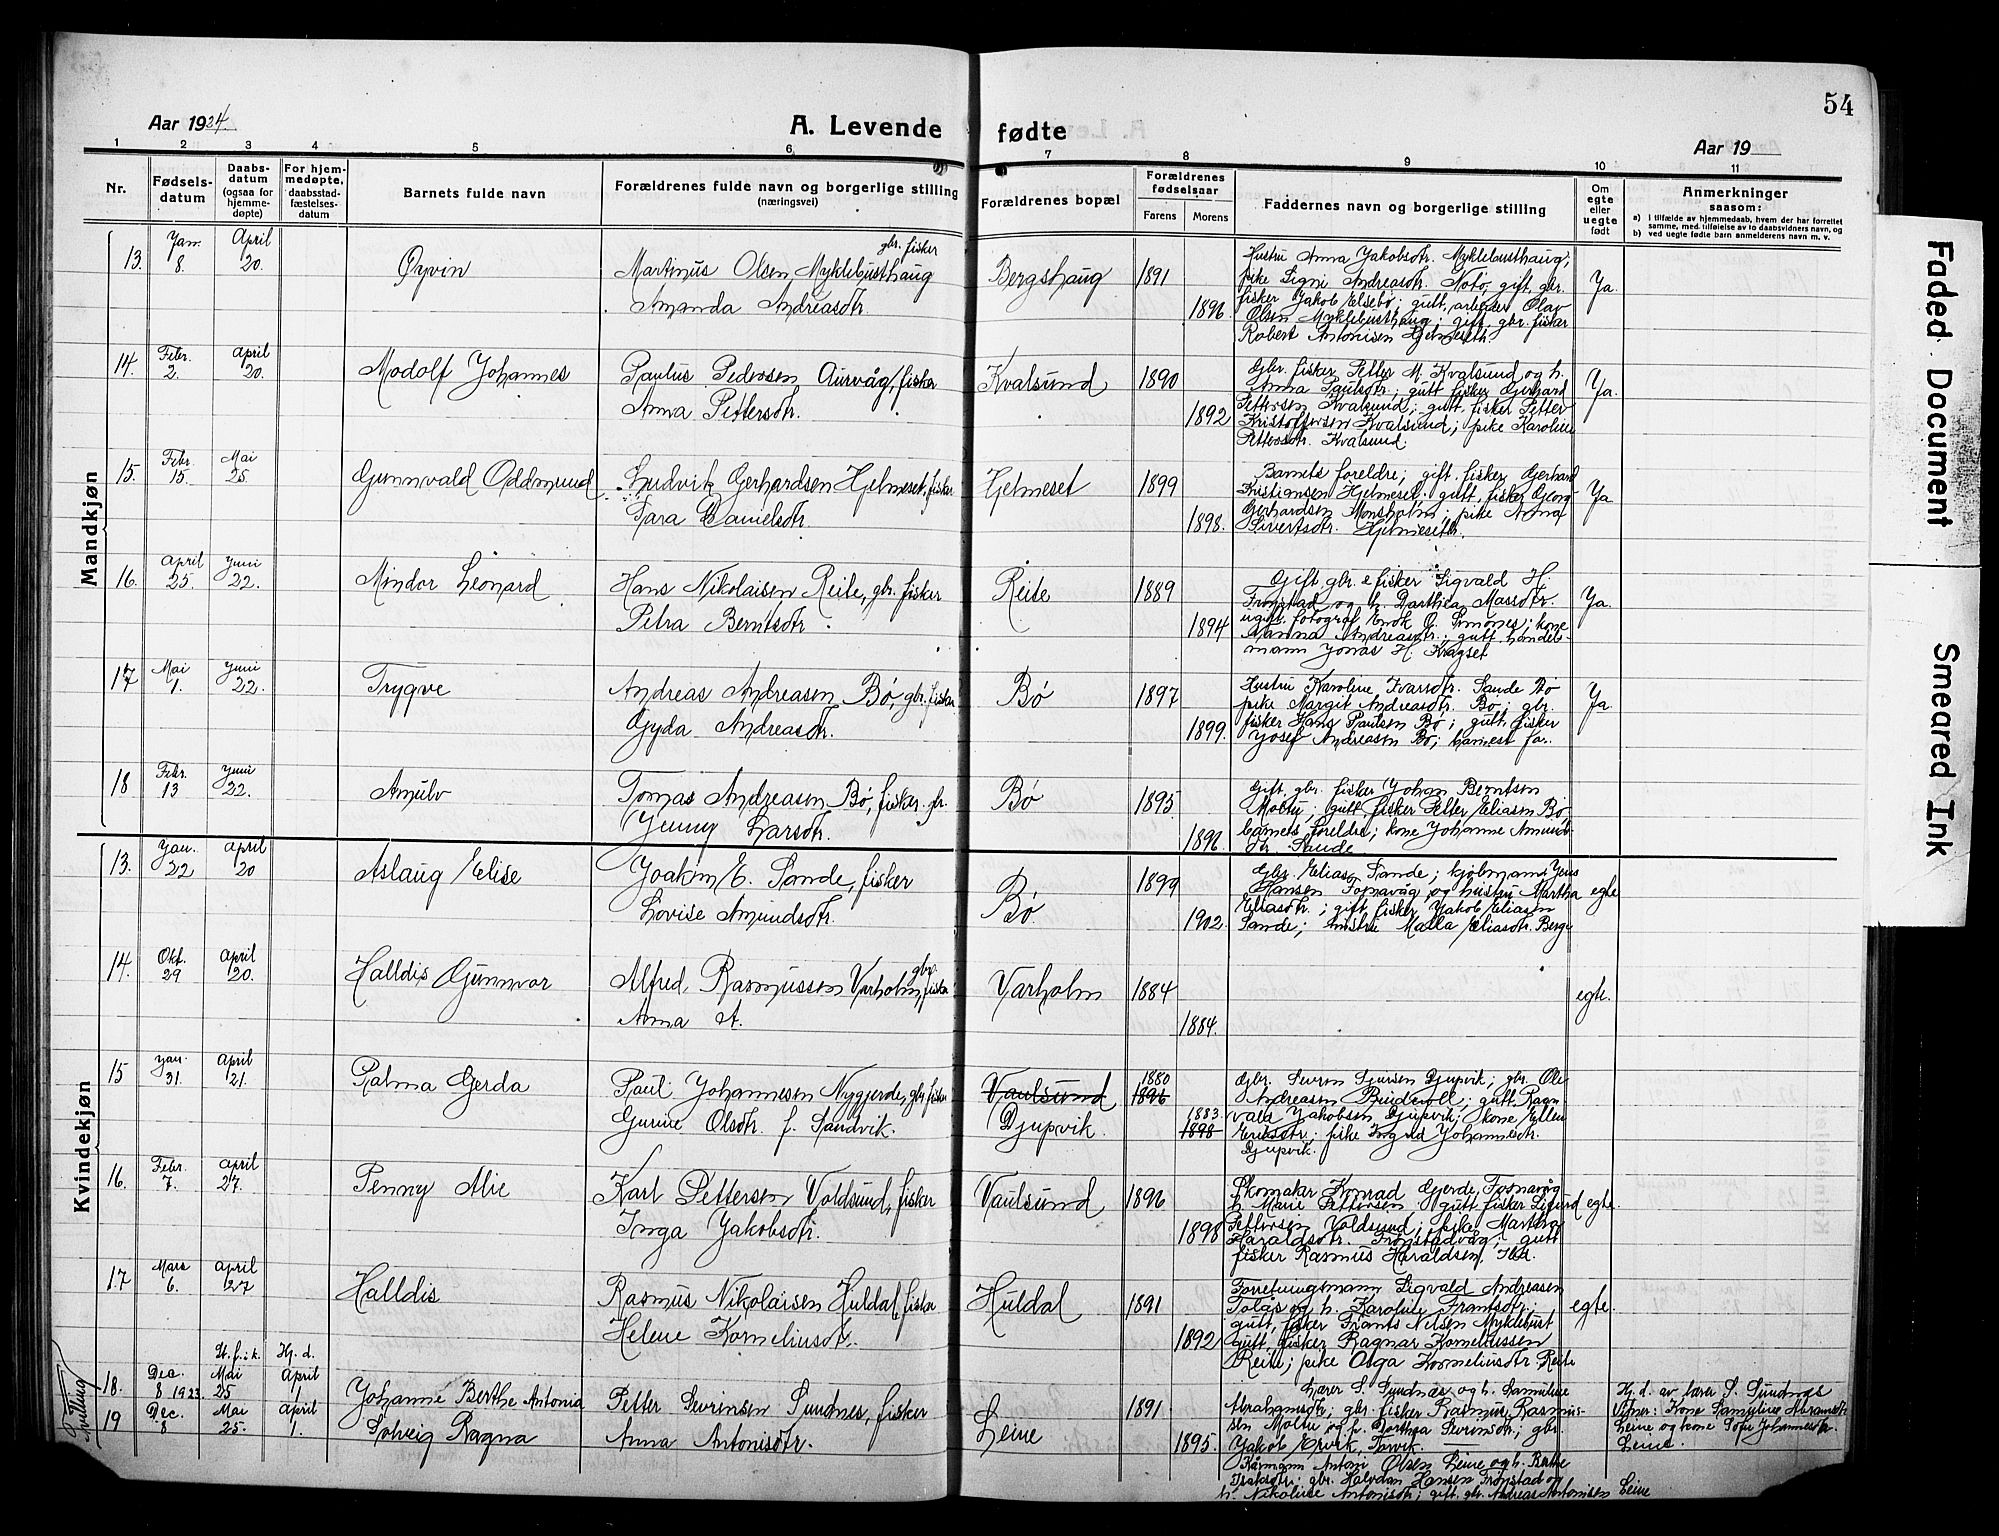 54
Aar 1924.
A. Levende fødte
Aar 19
1 2 3 4 5 6 7 8 9 10 11
Nr.
Fødselsdatum
Daabsdatum (ogsaa for hjemmedøpte)
For hjemmedøpte, daabsstadfæstelsesdatum
Barnets fulde navn
Forældrenes fulde navn og borgerlige stilling (næringsvei)
Forældrenes bopæl
Forældrenes fødselsaar
Farens
Morens
Faddernes navn og borgerlige stilling
Om egte eller uegte født
Anmerkninger saasom:
a) i tilfælde av hjemmedaab, hvem der har forrettet samme, med tilføielse av to daabsvidners navn, og
b) ved uegte fødte barn anmelderens navn m. v.
Mandkjøn
13. Jan. 8. April 20. Øyvin
Martinus Olsen Myklebusthaug gbr. fisker
Amanda Andreasdtr.
Bergshaug 1891 1896.
Hustru Anna Jakobsdtr. Myklebusthaug;
pike Signi Andreasdtr. Notø, gift, gbr.
fisker Jakob Elsebø; gutt, arbeider Olav
Olsen Myklebusthaug; gift, gbr. fisker
Robert Antonisen Hjelmeseth.
Ja.
14. Febr. 2. April 20. Modolf Johannes
Paulus Pedersen Aurvåg, fisker
Anna Pettersdtr.
Kvalsund 1890 1892
Gbr. fisker Petter M. Kvalsund og h.
Anna Paulsdtr.; gutt fisker Gerhard
Pettersen Kvalsund; gutt, fisker Petter
Kristoffersen Kvalsund; pike Karoline
Pettersdtr. Kvalsund.
Ja.
15. Febr. 15. Mai 25. Gunnvald Oddmund
Ludvik Gerhardsen Hjelmeset, fisker
Tara Danielsdtr.
Hjelmeset 1899 1898.
Barnets foreldre; gift. fisker Gerhard
Kristiansen Hjelmeset. gutt, fisker Georg
Gerhardsen Monsholm; pike Anna
Sivertsdtr. Hjelmeseth.
Ja
16. April 25. Juni 22. Mindor Leonard
Hans Nikolaisen Reite, gbr. fisker
Petra Berntsdtr.
Reite 1889 1894
Gift gbr. e fisker Sigvald H.
Frønstad og h. Darthea Massdtr.
ugift. fotograf Enok O. Simones; kone
Nanna Andreasdtr.; gutt handels-
mann Jonas H. Kragset
Ja.
17 Mai 1. Juni 22. Trygve
Andreas Andreasen Bø, gbr. fisker
Gyda Andreasdtr.
Bø 1897 1899.
Hustru Karoline Ivarsdtr. Sande Bø
pike Margit Andreasdtr. Bø; gbr.
fisker Hans Paulsen Bø; gutt fisker
Josef Andreasen Bø; barnest far.
Ja
18 Febr. 13 Juni 22. Arnulv
Tomas Andreasen Bø, fisker
Jenny Larsdtr.
Bø 1895 1896.
Gift, gbr. fisker Johan Berntsen
Moltu; gutt, fisker Petter Eliasen Bø
barnets foreldre; kone Johanne Amunds-
dtr. Sande
Kvindekjøn
13. Jan. 22 April 20 Aslaug Elise
Joakim E. Sande, fisker
Lovise Amundsdtr.
Bø 1899 1902.
Gbr. Elias Sande; kjølmann Jens
Hansen Fosnavåg og hustru Martha
Eliasdtr.; gift, fisker Jakob Eliasen
Sande; hustru Malla Eliasdtr. Berge
egte
14. Okt. 29 April 20. Halldis Gunnvor
Alfred Rasmussen Varholm, gbr. fisker
Anna A.
Varholm 1884 1884.
egte.
15 Jan. 31. April 21. Palma Gerda
Paul Johannesen Nygjerde, gbr. fisker
Gurine Olsdtr. f. Sandvik.
Vaulsund Djupvik. 1880 1896 1883. 1898
Gbr. Severin Sjursen Djupvik; gbr. Ole
Andreasen Budevoll; gutt Ragn-
vald Jakobsen Djupvik; kone Ellen
Eriksdtr.; pike Ingvld Johannesdtr.
Djupvik.
16. Febr. 7. April 27. Penny Alie
Karl Pettersen Voldsund, fisker
Inga Jakobsdtr.
Vaulsund 1896 1898
Skomaker Konrad Gjerde, Fosnavåg
h. Marie Pettersen gutt fisker Sigurd
Pettersen Voldsund; pike Martha
Haraldsdtr. Frønstadvåg; gutt
fisker Rasmus Haraldsen, Ibd.
egte.
17 Mars 6. April 27 Halldis
Rasmus Nikolaisen Huldal, fisker
Helene Korneliusdtr.
Huldal 1891 1892
Forretningsmann Sigvald Andreasen
Tolås og h. Karoline Frantsdtr.;
gutt, fisker Frants Nilsen Myklebust
gutt, fisker Ragnar Korneliussen
Reite; pike Olga Korneliusdtr. Reite
egte.
Tvilling
St. f. i k. Hj. d.
18. Dec. 8 1923 Mai 25 April 1. Johanne Berthe Antonia
19 Dec. 8 Mai 25. April 1. Solveig Ragna
Petter Sevrinsen Sundnes, fisker
Anna Antonisdtr.
Leine 1891 1895.
Lærer S. Sundnes og h. Sammeline
Abrahamsdtr; gbr. fisker Rasmus Rasmus-
sen Moltu og h. Dorthea Sevrinsdtr; gbr.
Jakob Ervik, Tarvik.
Kårmann Antoni Olsen Leine og h. Berthe
Isaksdtr; gbr. Halvdan Hansen Frønstad og
h. Nikoline Antonisdtr; gift, gbr. Andreas Antonisen Leine
Hj. d. av lærer S. Sundnes
Vitner: Kone Sameline Abramsdtr.
Leine og kone Sofie Johannesdtr.
Leine.
Faded Document
Smeared Ink